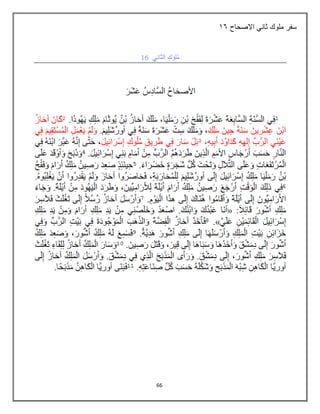 سفر ملوك ثاني الاصحاح ١٦
مُلوك الثاني 16
الأصحَاحُ السَّادِسُ عَشَرَ
١فِي السَّنَةِ السَّابِعَةَ عَشَرَةَ لِفَقْحَ بْنِ رَمَلْيَا، مَلَكَ آحَازُ بْنُ يُوثَامَ مَلِكِ يَهُوذَا. ٢كَانَ آحَازُ
ابْنَ عِشْرِينَ سَنَةً حِينَ مَلَكَ، وَمَلَكَ سِتَّ عَشَرَةَ سَنَةً فِي أُورُشَلِيمَ. وَلَمْ يَعْمَلِ الْمُسْتَقِيمَ فِي
عَيْنَيِ الرَّبِّ إِلهِهِ كَدَاوُدَ أَبِيهِ، ٣بَلْ سَارَ فِي طَرِيقِ مُلُوكِ إِسْرَائِيلَ، حَتَّى إِنَّهُ عَبَّرَ ابْنَهُ فِي
النَّارِ حَسَبَ أَرْجَاسِ الأُمَمِ الَّذِينَ طَرَدَهُمُ الرَّبُّ مِنْ أَمَامِ بَنِي إِسْرَائِيلَ. ٤وَذَبَحَ وَأَوْقَدَ عَلَى
الْمُرْتَفَعَاتِ وَعَلَى التِّلاَلِ وَتَحْتَ كُلِّ شَجَرَةٍ خَضْرَاءَ. ٥حِينَئِذٍ صَعِدَ رَصِينُ مَلِكُ أَرَامَ وَفَقْحُ
بْنُ رَمَلْيَا مَلِكُ إِسْرَائِيلَ إِلَى أُورُشَلِيمَ لِلْمُحَارَبَةِ، فَحَاصَرُوا آحَازَ وَلَمْ يَقْدِرُوا أَنْ يَغْلِبُوهُ.
٦فِي ذلِكَ الْوَقْتِ أَرْجَعَ رَصِينُ مَلِكُ أَرَامَ أَيْلَةَ لِلأَرَامِيِّينَ، وَطَرَدَ الْيَهُودَ مِنْ أَيْلَةَ. وَجَاءَ
الأَرَامِيُّونَ إِلَى أَيْلَةَ وَأَقَامُوا هُنَاكَ إِلَى هذَا الْيَوْمِ. ٧وَأَرْسَلَ آحَازُ رُسُلاً إِلَى تَغْلَثَ فَلاَسِرَ
مَلِكِ أَشُّورَ قَائِلاً: «أَنَا عَبْدُكَ وَابْنُكَ. اصْعَدْ وَخَلِّصْنِي مِنْ يَدِ مَلِكِ أَرَامَ وَمِنْ يَدِ مَلِكِ
إِسْرَائِيلَ الْقَائِمَيْنِ عَلَيَّ». ٨فَأَخَذَ آحَازُ الْفِضَّةَ وَالذَّهَبَ الْمَوْجُودَةَ فِي بَيْتِ الرَّبِّ وَفِي
خَزَائِنِ بَيْتِ الْمَلِكِ وَأَرْسَلَهَا إِلَى مَلِكِ أَشُّورَ هَدِيَّةً. ٩فَسَمِعَ لَهُ مَلِكُ أَشُّورَ، وَصَعِدَ مَلِكُ
أَشُّورَ إِلَى دِمَشْقَ وَأَخَذَهَا وَسَبَاهَا إِلَى قِيرَ، وَقَتَلَ رَصِينَ. ١٠وَسَارَ الْمَلِكُ آحَازُ لِلِقَاءِ تَغْلَثَ
فَلاَسِرَ مَلِكِ أَشُّورَ، إِلَى دِمَشْقَ. وَرَأَى الْمَذْبَحَ الَّذِي فِي دِمَشْقَ. وَأَرْسَلَ الْمَلِكُ آحَازُ إِلَى
أُورِيَّا الْكَاهِنِ شِبْهَ الْمَذْبَحِ وَشَكْلَهُ حَسَبَ كُلِّ صِنَاعَتِهِ. ١١فَبَنَى أُورِيَّا الْكَاهِنُ مَذْبَحًا.
66